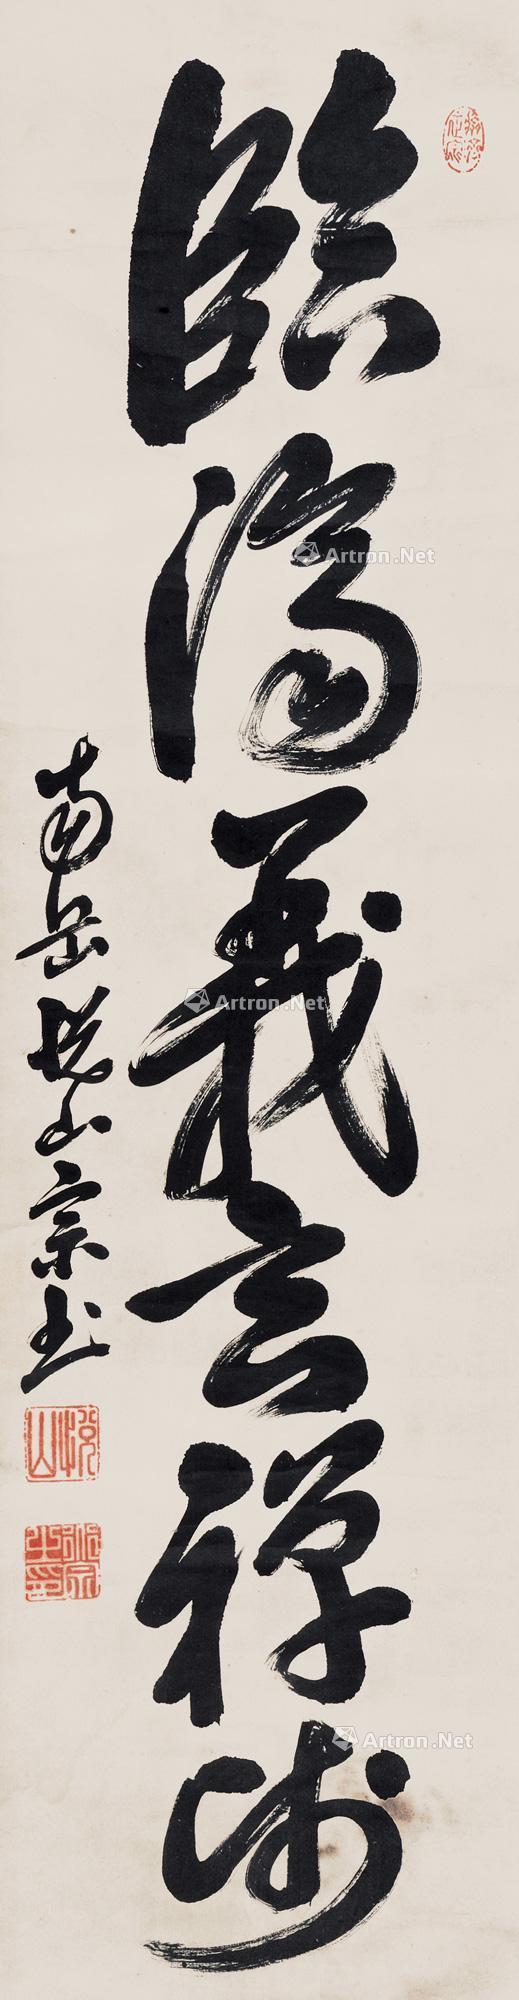 臨濟義玄禪師
南岳悦山宗書
悦山
Artron.Net
Artron.Net
Artron.Net